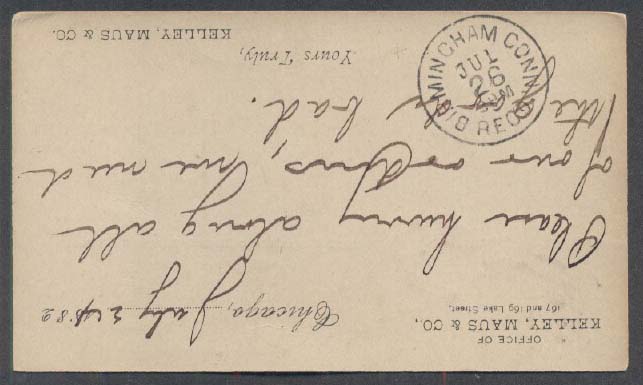 OFFICE OF
KELLEY, MAUS & CO.,
167 and 169 Lake Street,
Chicago, July 24 1882
Please hurry along all
of our orders, we need
the goods bad.
Yours Truly,
KELLEY, MAUS & CO.
BIRMINGHAM CONN.
JUL
26
REC'D